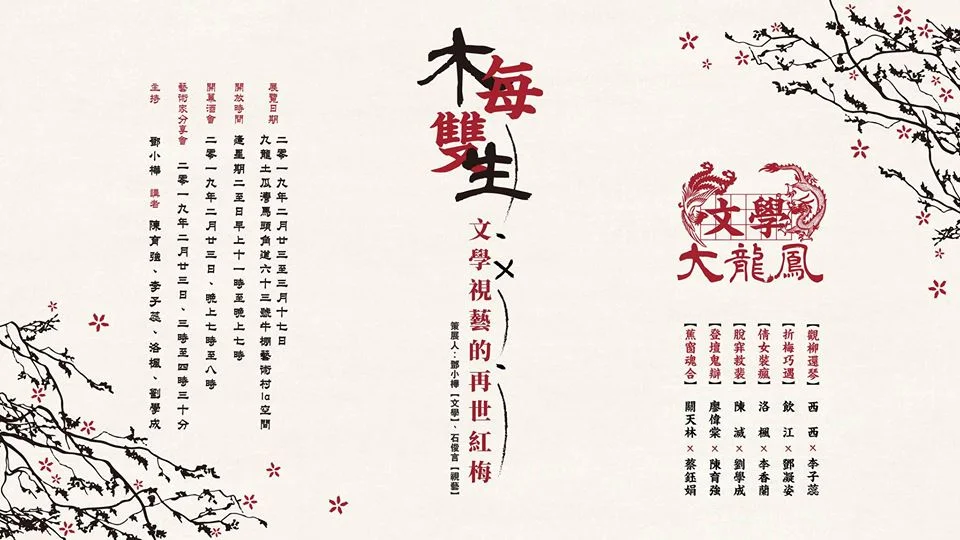 文學
大龍鳳
【觀柳還琴】 西西×李子蕊
【折梅巧遇】 飲江×鄧凝姿
【倩女裝瘋】 洛楓×李香蘭
【脫穽救裴】 陳滅×劉學成
【登壇鬼辯】 廖偉棠×陳育強
【蕉窗魂合】 關天林×蔡鈺娟
木每
雙生
×
文學視藝的再世紅梅
策展人：鄧小樺【文學】、石俊言【視藝】
展覽日期 二零一九年二月廿三至三月十七日
九龍土瓜灣馬頭角道六十三號牛棚藝術村1a空間
開放時間 逢星期二至日早上十一時至晚上七時
開幕酒會 二零一九年二月廿三日、晚上七時至八時
藝術家分享會 二零一九年二月廿三日、三時至四時三十分
主持 鄧小樺 講者 陳育強、李子蕊、洛楓、劉學成